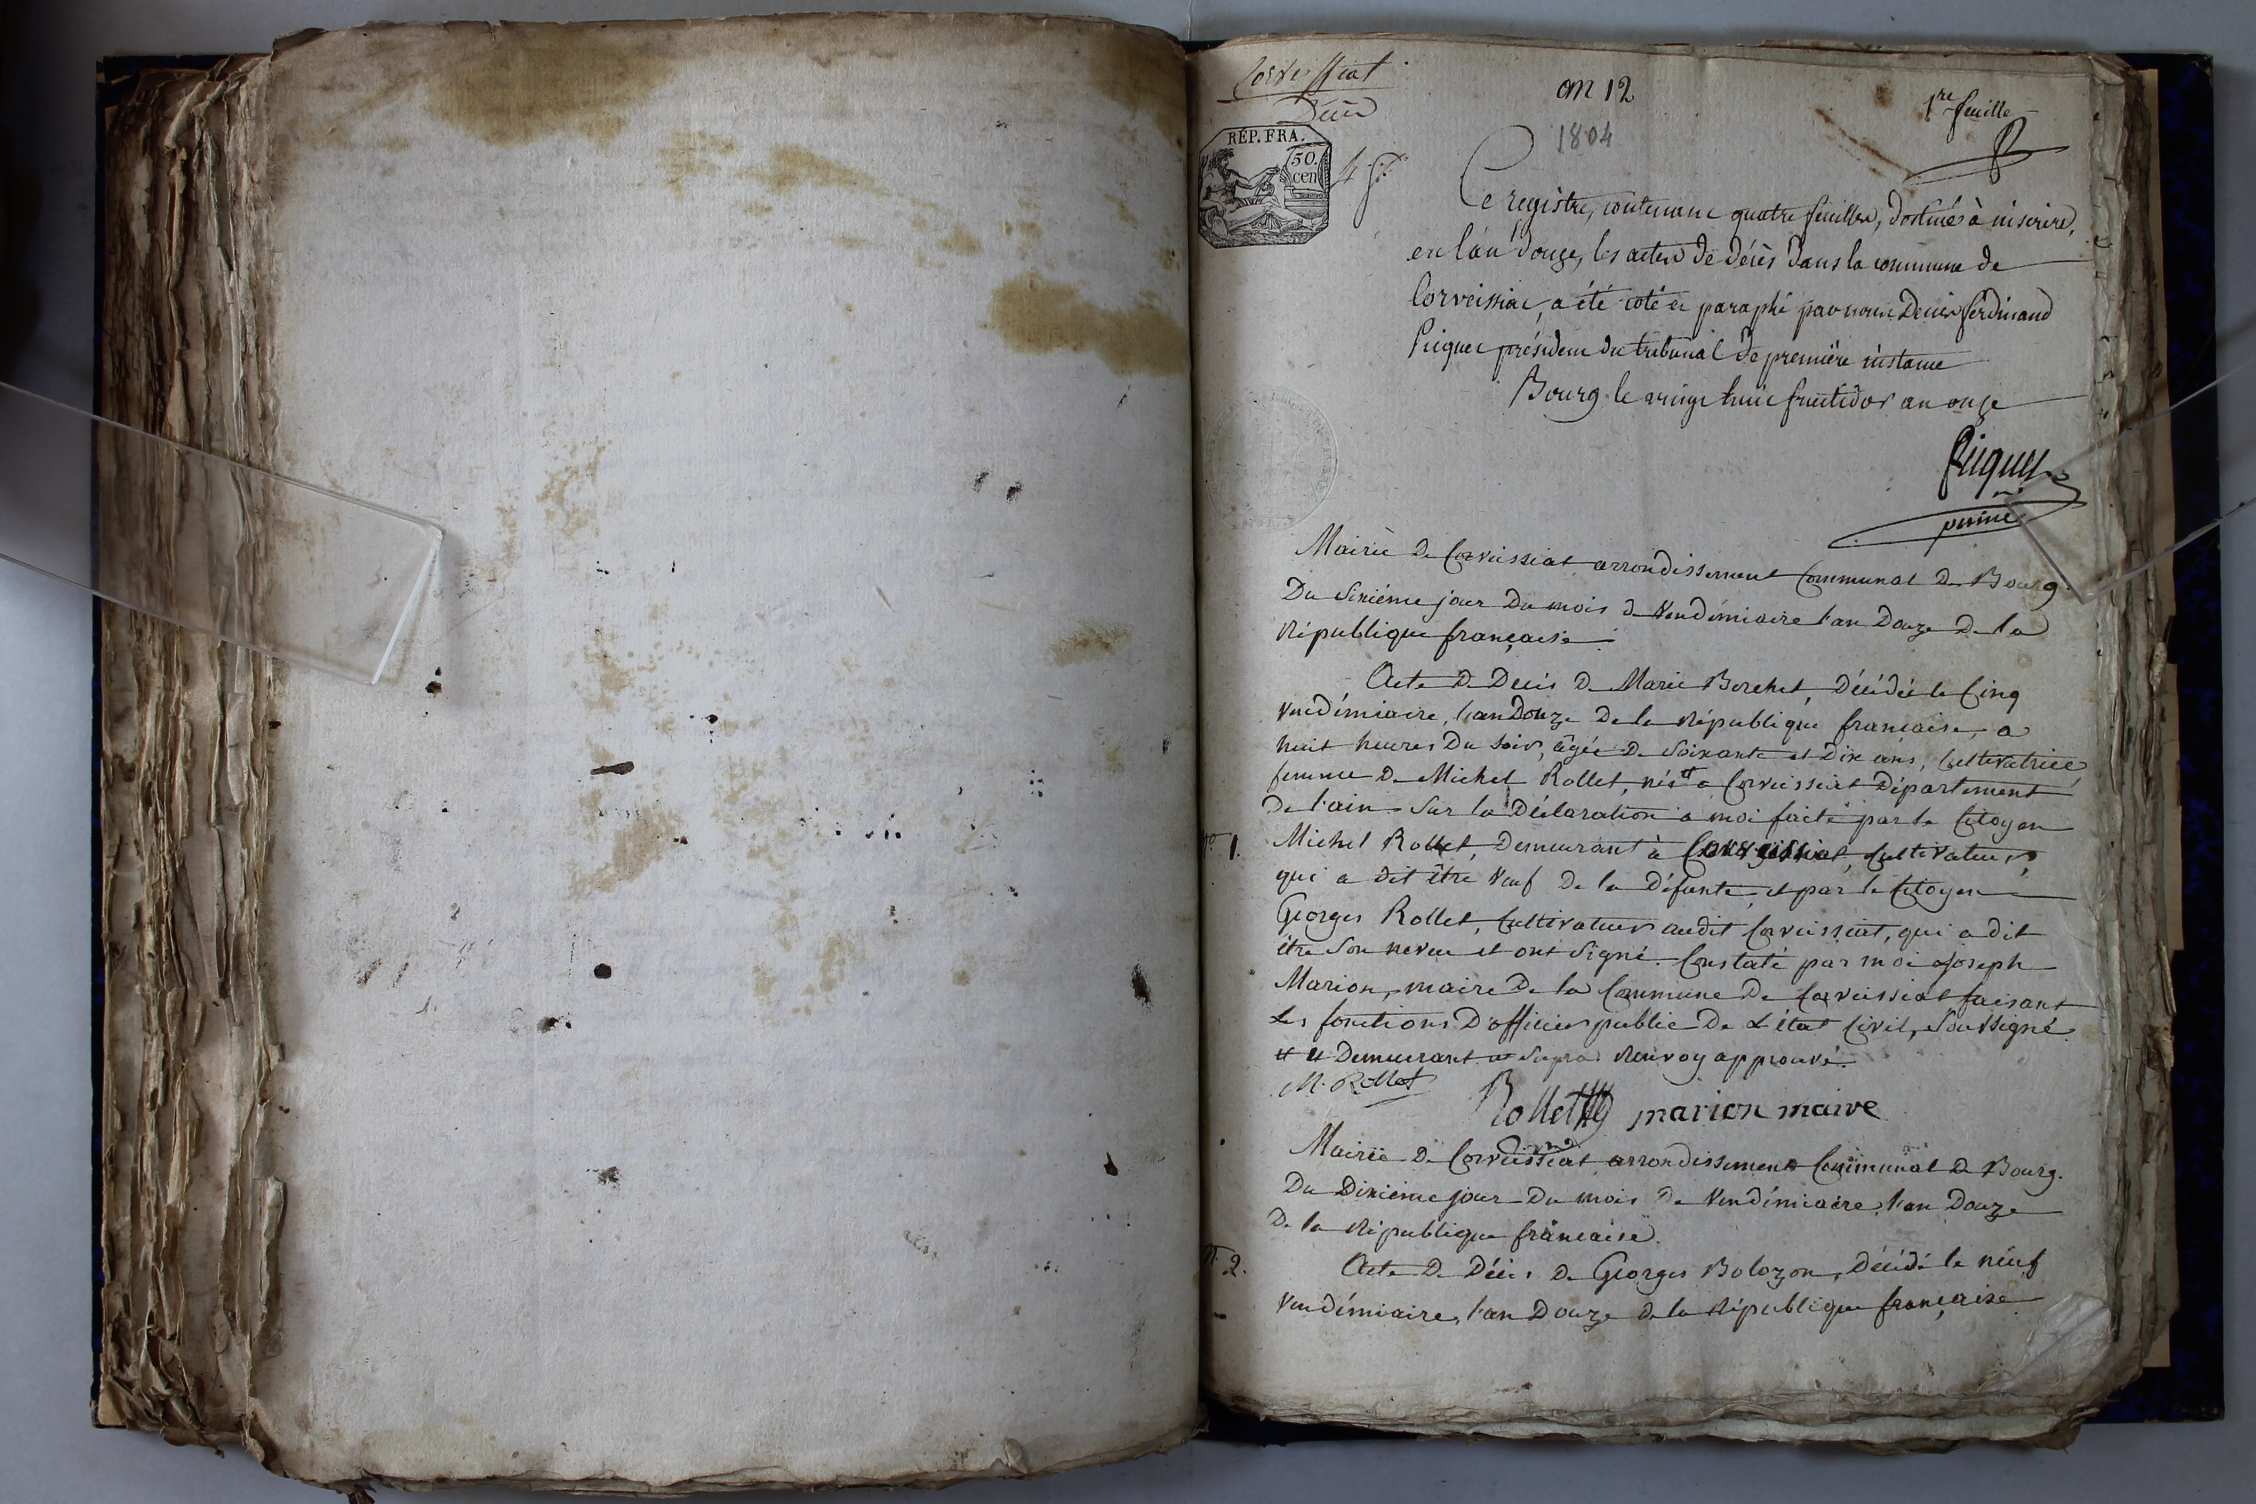 Corveissiat
Décès
an 12
1804
1re feuille
RÉP. FRA.
50.
cen
4 f.
Ce registre, contenant quatre feuilles, destiné à inscrire,
en l'an douze, les actes de décès dans la commune de
Corveissiat, a été coté et paraphé par nous Denis ferdinand
Picquet président du tribunal de première instance
Bourg le vingt huit fructidor an onze
Picquet
Mairie de Corveissiat arrondissement Communal de Bourg.
Du Sixième jour Du mois de Vendémiaire l'an Douze De la
République française.
Acte De Décès De Marie Borchet, Décédée le Cinq
Vendémiaire, l'an Douze De la République française, a
huit heures Du Soir, âgée De Soixante et Dix ans, Cultivatrice
femme De Michel Rollet, née # a Corveissiat Département
De l'ain. Sur la Déclaration a moi faite par le Citoyen
No 1.
Michel Rollet, Demeurant à Corveissiat, Cultivateur
qui a dit être Veuf De la Défunte, et par le Citoyen
Georges Rollet, Cultivateur audit Corveissiat, qui a dit
être Son neveu et ont Signé. Constaté par moi Joseph
Marion, maire De la Commune De Corveissiat faisant
Les fonctions D'officier public De L'état Civil, Soussigné.
# et Demeurant Supra Renvoy approuvé.
M. Rollet
Rollet marion maire
Mairie De Corveissiat arrondissement Communal De Bourg.
Du Dixième jour Du mois De Vendémiaire l'an Douze
De la République française.
N. 2.
Acte De Décès De Georges Bolozon, Décédé le neuf
Vendémiaire, l'an Douze De la République française